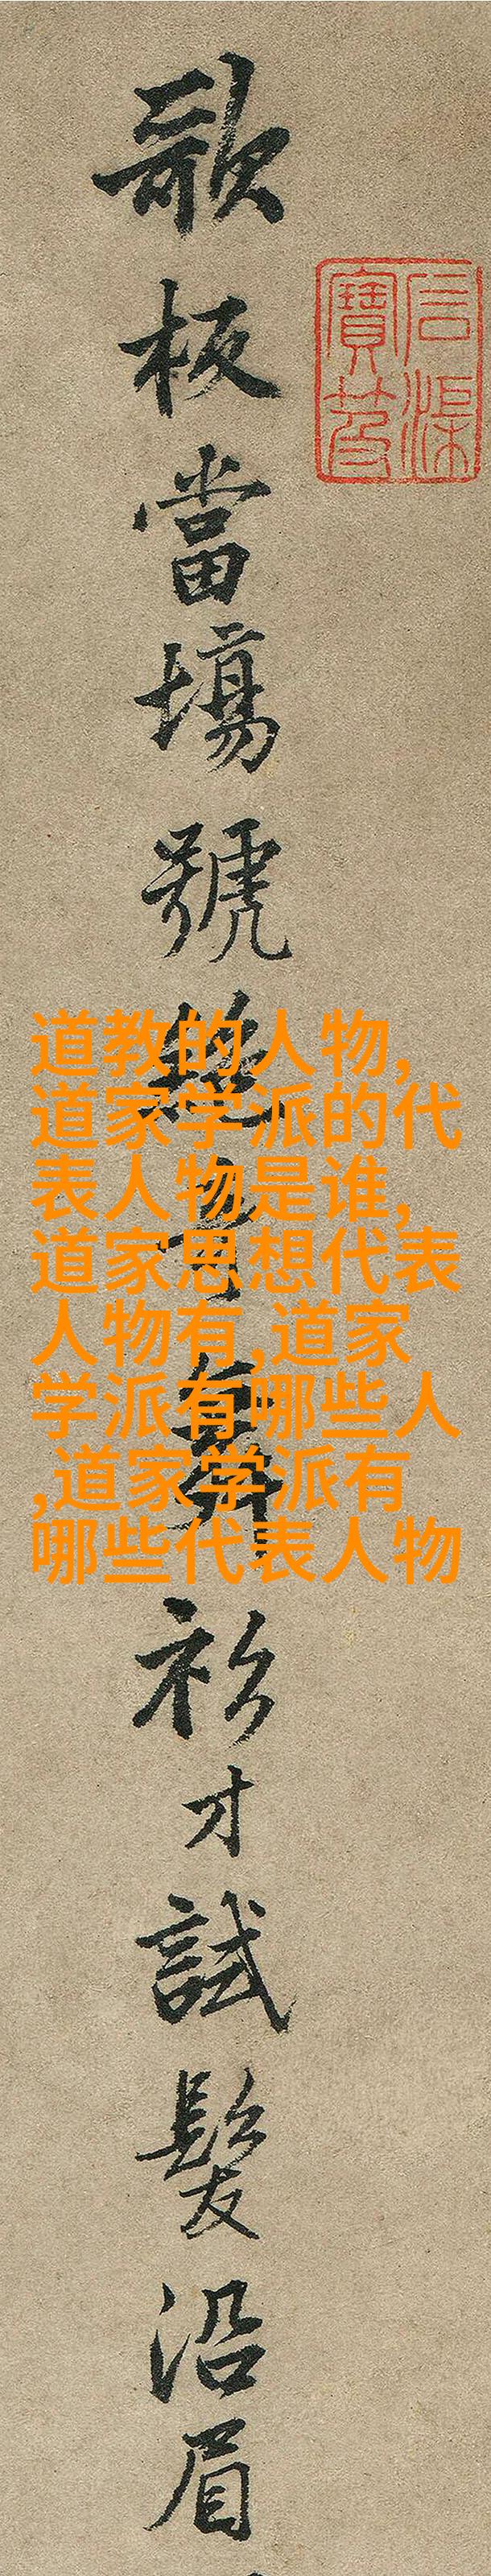 石渠
寶笈
歌板當場號絕奇舞衫才試髮沿眉
道教的人物,
道家学派的代
表人物是谁,
道家思想代表
人物有,道家
学派有哪些人
,道家学派有
哪些代表人物